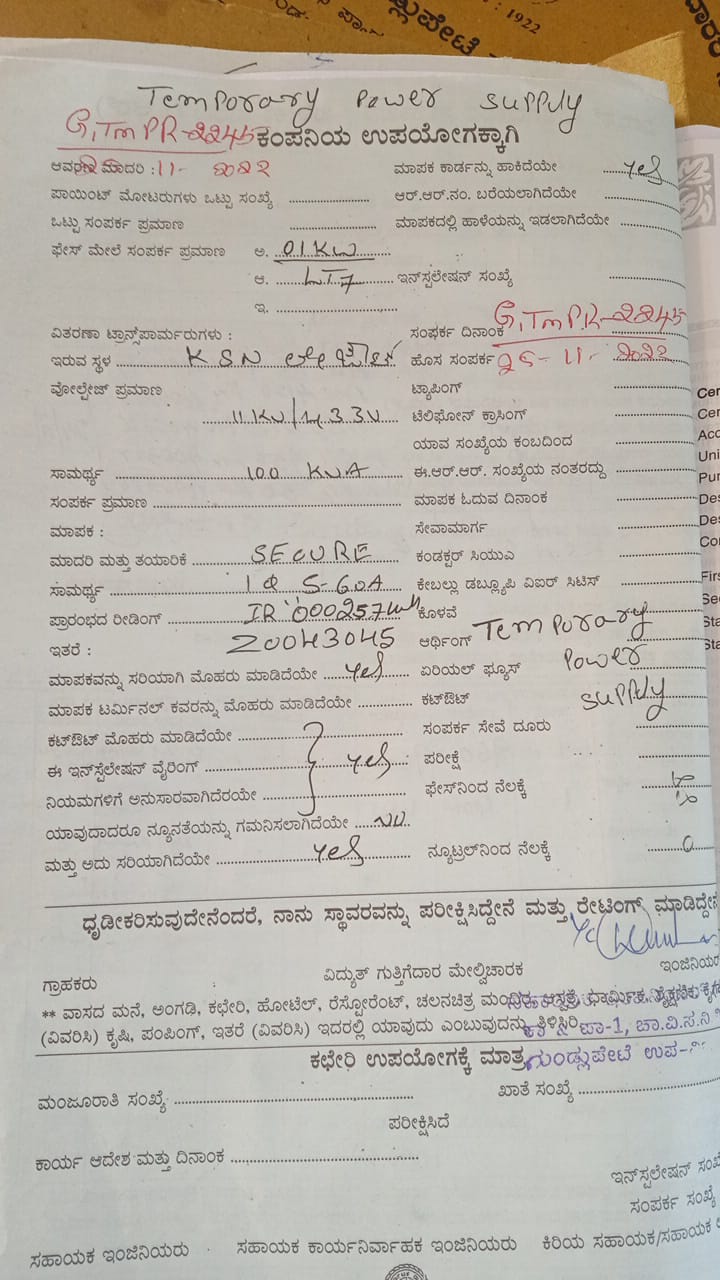 : 1922
ಡ್ಲುಪೇಟೆ
Temporary Power Supply
G,TmPR-2245 ಕಂಪನಿಯ ಉಪಯೋಗಕ್ಕಾಗಿ
ಆವರಣ ಮಾದರಿ : 25-11-2022 ಮಾಪಕ ಕಾರ್ಡನ್ನು ಹಾಕಿದೆಯೇ yes
ಪಾಯಿಂಟ್ ಮೋಟರುಗಳು ಒಟ್ಟು ಸಂಖ್ಯೆ ಆರ್.ಆರ್.ನಂ. ಬರೆಯಲಾಗಿದೆಯೇ
ಒಟ್ಟು ಸಂಪರ್ಕ ಪ್ರಮಾಣ ಮಾಪಕದಲ್ಲಿ ಹಾಳೆಯನ್ನು ಇಡಲಾಗಿದೆಯೇ
ಫೇಸ್ ಮೇಲೆ ಸಂಪರ್ಕ ಪ್ರಮಾಣ ಅ. 01KW
ಆ. LT7 ಇನ್‌ಸ್ಟಲೇಷನ್ ಸಂಖ್ಯೆ
ಇ.
ವಿತರಣಾ ಟ್ರಾನ್ಸ್‌ಪಾರ್ಮರುಗಳು : ಸಂಪರ್ಕ ದಿನಾಂಕ G,TmPR-2245
ಇರುವ ಸ್ಥಳ KSN ಹೊಸ ಸಂಪರ್ಕ 25-11-2022
ವೋಲ್ಟೇಜ್ ಪ್ರಮಾಣ ಟ್ಯಾಪಿಂಗ್
11KV/433V ಟೆಲಿಫೋನ್ ಕ್ರಾಸಿಂಗ್
ಯಾವ ಸಂಖ್ಯೆಯ ಕಂಬದಿಂದ
ಸಾಮರ್ಥ್ಯ 100 KVA ಈ.ಆರ್.ಆರ್. ಸಂಖ್ಯೆಯ ನಂತರದ್ದು
ಸಂಪರ್ಕ ಪ್ರಮಾಣ ಮಾಪಕ ಓದುವ ದಿನಾಂಕ
ಮಾಪಕ : ಸೇವಾಮಾರ್ಗ
ಮಾದರಿ ಮತ್ತು ತಯಾರಿಕೆ SECURE ಕಂಡಕ್ಟರ್ ಸಿಯುಎ
ಸಾಮರ್ಥ್ಯ 1Φ 5-60A ಕೇಬಲ್ಲು ಡಬ್ಲ್ಯೂಪಿ ವಿಐರ್ ಸಿಟಿಸ್
ಪ್ರಾರಂಭದ ರೀಡಿಂಗ್ IR 000257 ಕೊಳವೆ
ಇತರೆ : 20043045 ಆರ್ಥಿಂಗ್ Temporary
ಮಾಪಕವನ್ನು ಸರಿಯಾಗಿ ಮೊಹರು ಮಾಡಿದೆಯೇ yes ಏರಿಯಲ್ ಫ್ಯೂಸ್ Power
ಮಾಪಕ ಟರ್ಮಿನಲ್ ಕವರನ್ನು ಮೊಹರು ಮಾಡಿದೆಯೇ ಕಟ್‌ಔಟ್ Supply
ಕಟ್‌ಔಟ್ ಮೊಹರು ಮಾಡಿದೆಯೇ ಸಂಪರ್ಕ ಸೇವೆ ದೂರು
ಈ ಇನ್‌ಸ್ಟಲೇಷನ್ ವೈರಿಂಗ್ yes ಪರೀಕ್ಷೆ
ನಿಯಮಗಳಿಗೆ ಅನುಸಾರವಾಗಿದೆರೆಯೇ ಫೇಸ್‌ನಿಂದ ನೆಲಕ್ಕೆ
ಯಾವುದಾದರೂ ನ್ಯೂನತೆಯನ್ನು ಗಮನಿಸಲಾಗಿದೆಯೇ NO
ಮತ್ತು ಅದು ಸರಿಯಾಗಿದೆಯೇ yes ನ್ಯೂಟ್ರಲ್‌ನಿಂದ ನೆಲಕ್ಕೆ 0
ಧೃಡೀಕರಿಸುವುದೇನೆಂದರೆ, ನಾನು ಸ್ಥಾವರವನ್ನು ಪರೀಕ್ಷಿಸಿದ್ದೇನೆ ಮತ್ತು ರೇಟಿಂಗ್ ಮಾಡಿದ್ದೇನೆ
ಗ್ರಾಹಕರು ವಿದ್ಯುತ್ ಗುತ್ತಿಗೆದಾರ ಮೇಲ್ವಿಚಾರಕ ಇಂಜಿನಿಯರ
** ವಾಸದ ಮನೆ, ಅಂಗಡಿ, ಕಛೇರಿ, ಹೋಟೆಲ್, ರೆಸ್ಟೋರೆಂಟ್, ಚಲನಚಿತ್ರ ಮಂದಿರ, ಆಸ್ಪತ್ರೆ, ಧಾರ್ಮಿಕ, ಶೈಕ್ಷಣಿಕ
(ವಿವರಿಸಿ) ಕೃಷಿ, ಪಂಪಿಂಗ್, ಇತರೆ (ವಿವರಿಸಿ) ಇದರಲ್ಲಿ ಯಾವುದು ಎಂಬುವುದನ್ನು ತಿಳಿಸಿರಿ ಪಾ-1, ಚಾ.ವಿ.ಸ.ನಿ
ಕಛೇರಿ ಉಪಯೋಗಕ್ಕೆ ಮಾತ್ರ ಗುಂಡ್ಲುಪೇಟೆ ಉಪ-
ಮಂಜೂರಾತಿ ಸಂಖ್ಯೆ ಖಾತೆ ಸಂಖ್ಯೆ
ಪರೀಕ್ಷಿಸಿದೆ
ಕಾರ್ಯ ಆದೇಶ ಮತ್ತು ದಿನಾಂಕ
ಇನ್‌ಸ್ಟಲೇಷನ್ ಸಂಖ್ಯೆ
ಸಂಪರ್ಕ ಸಂಖ್ಯೆ
ಸಹಾಯಕ ಇಂಜಿನಿಯರು ಸಹಾಯಕ ಕಾರ್ಯನಿರ್ವಾಹಕ ಇಂಜಿನಿಯರು ಕಿರಿಯ ಸಹಾಯಕ/ಸಹಾಯಕ
Cer
Cer
Acc
Uni
Pur
Des
Des
Co
Firs
Sec
Sta
Sta